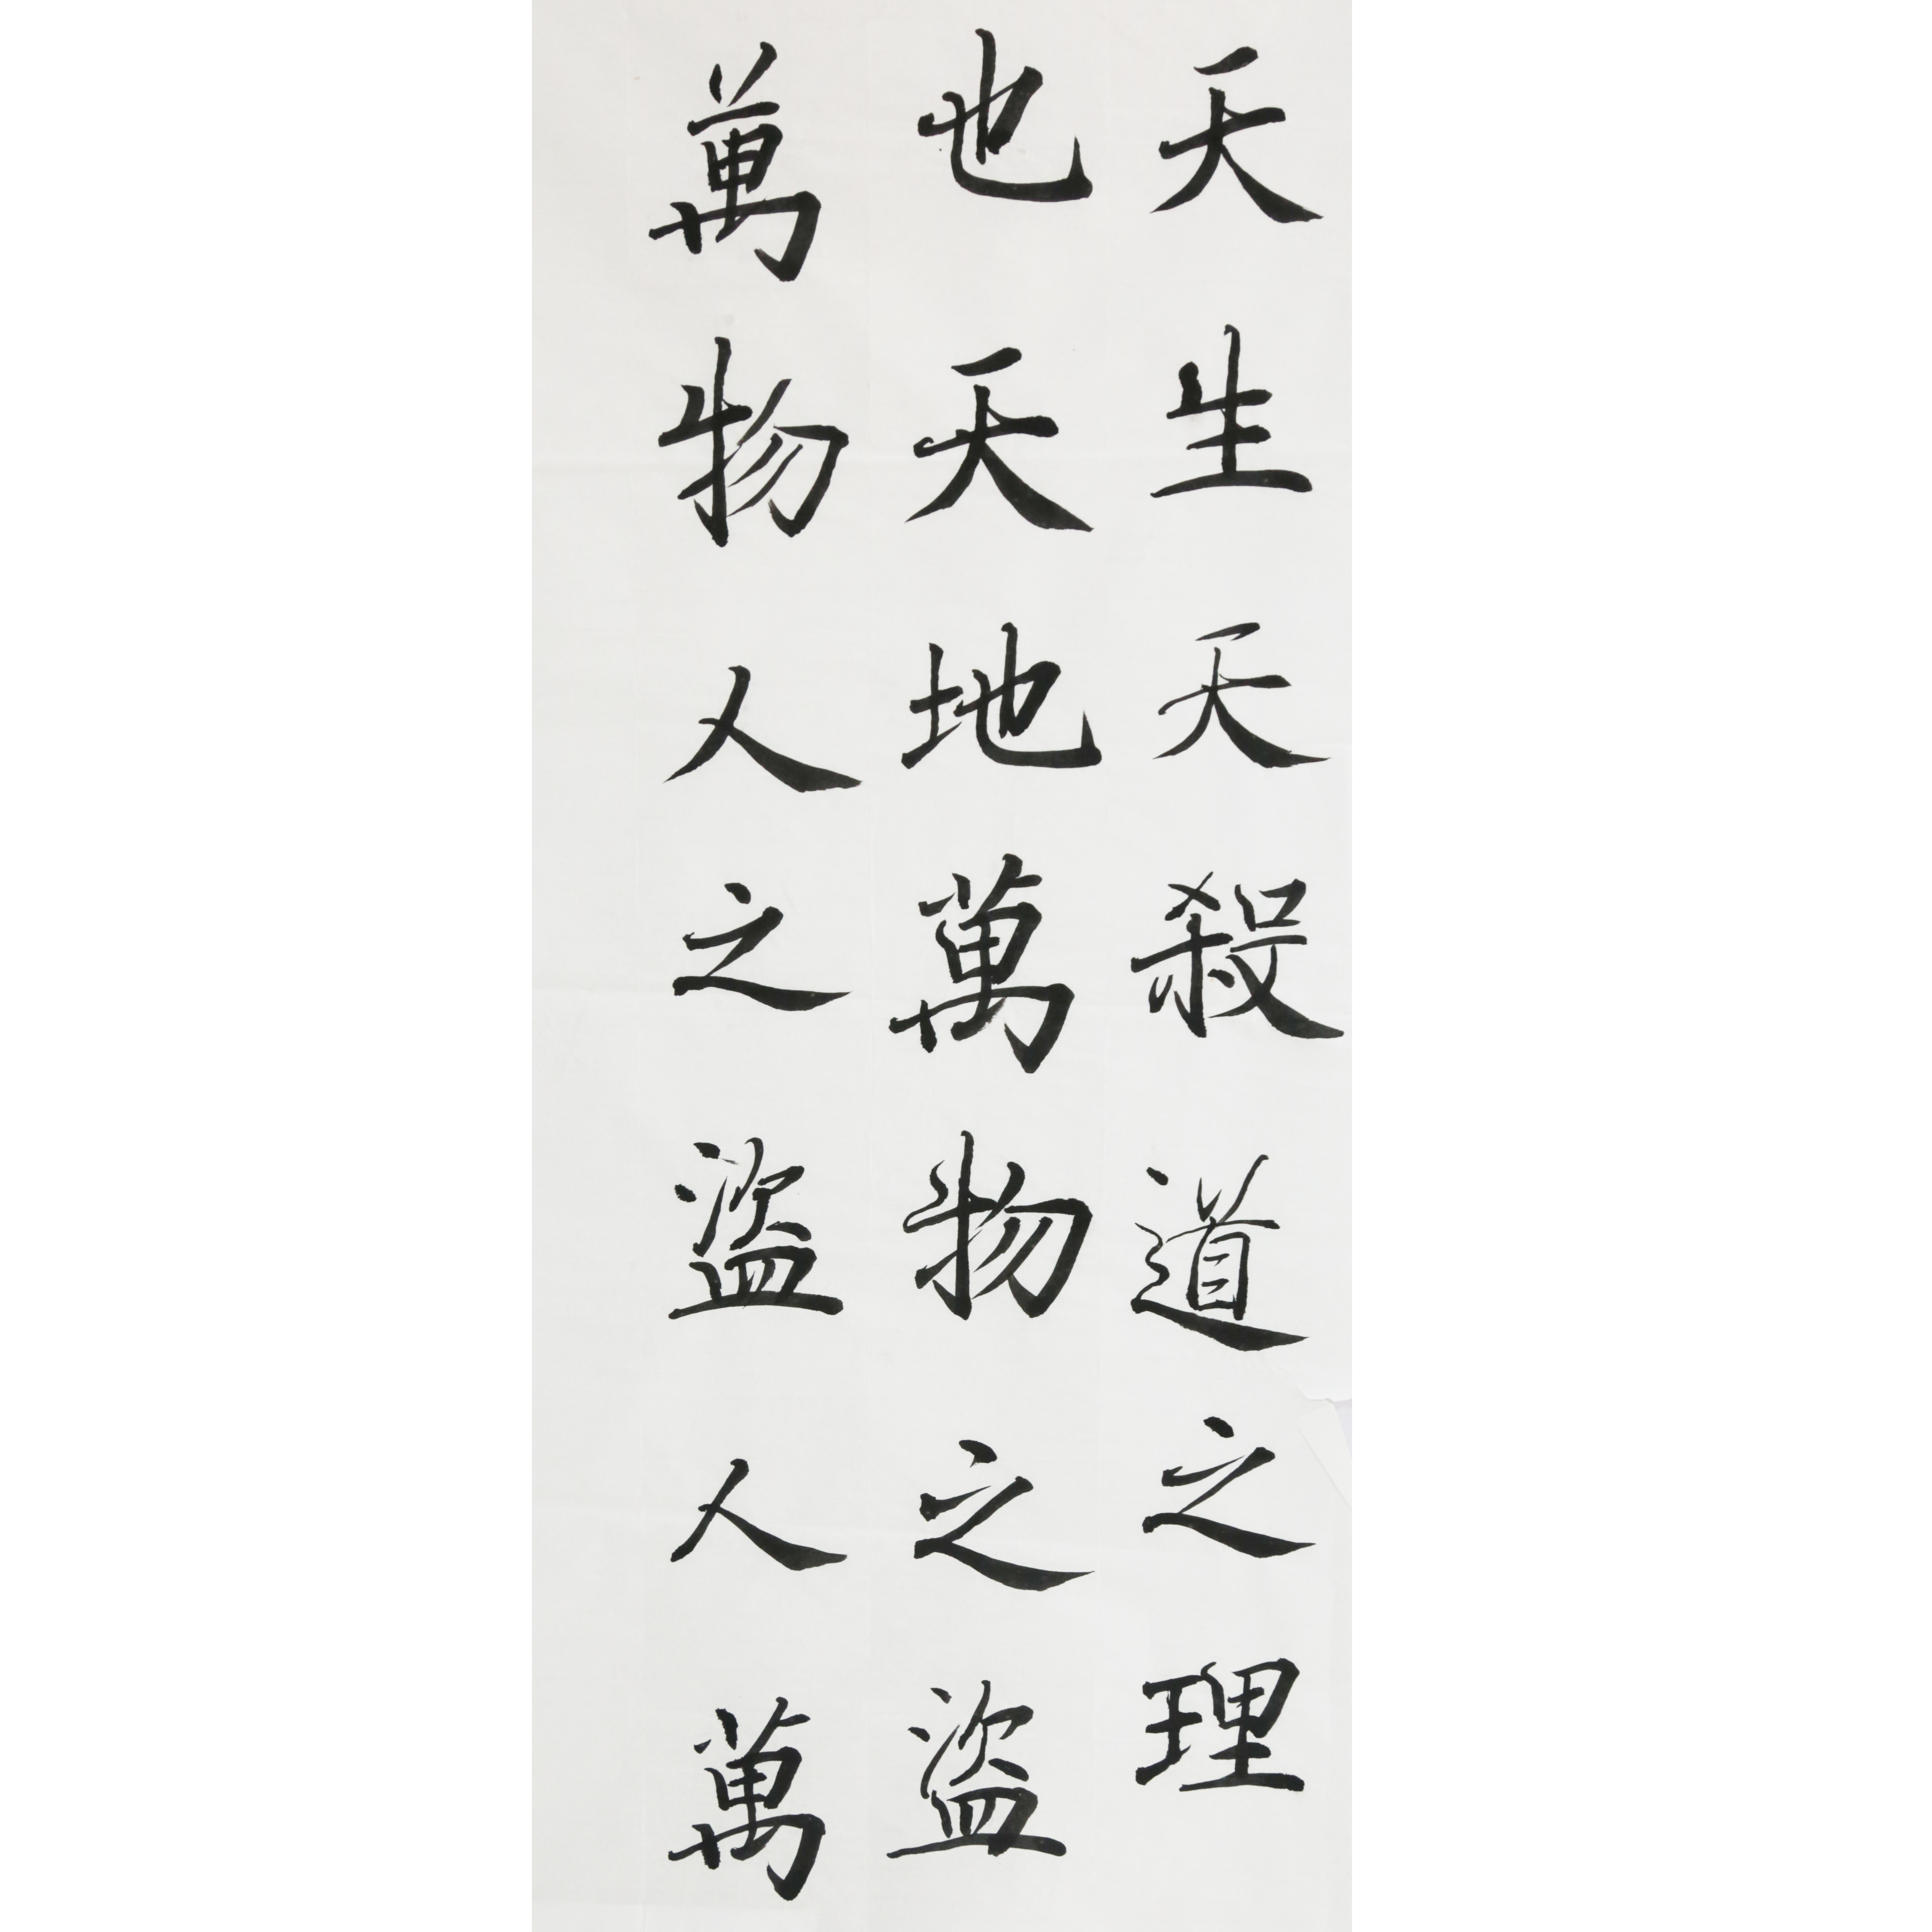 天生天殺道之理
也天地萬物之盜
萬物人之盜人萬